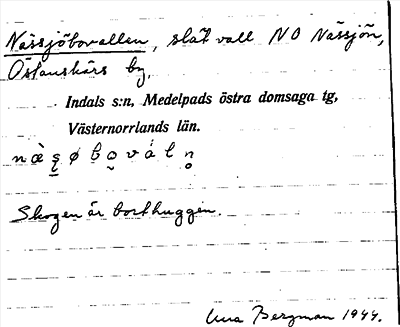 Nässjöbovallen, slåt vall NO Nässjön,
Östanskärs by,
Indals s:n, Medelpads östra domsaga tg,
Västernorrlands län.
Skogen är borthuggen.
Bergman 1944.